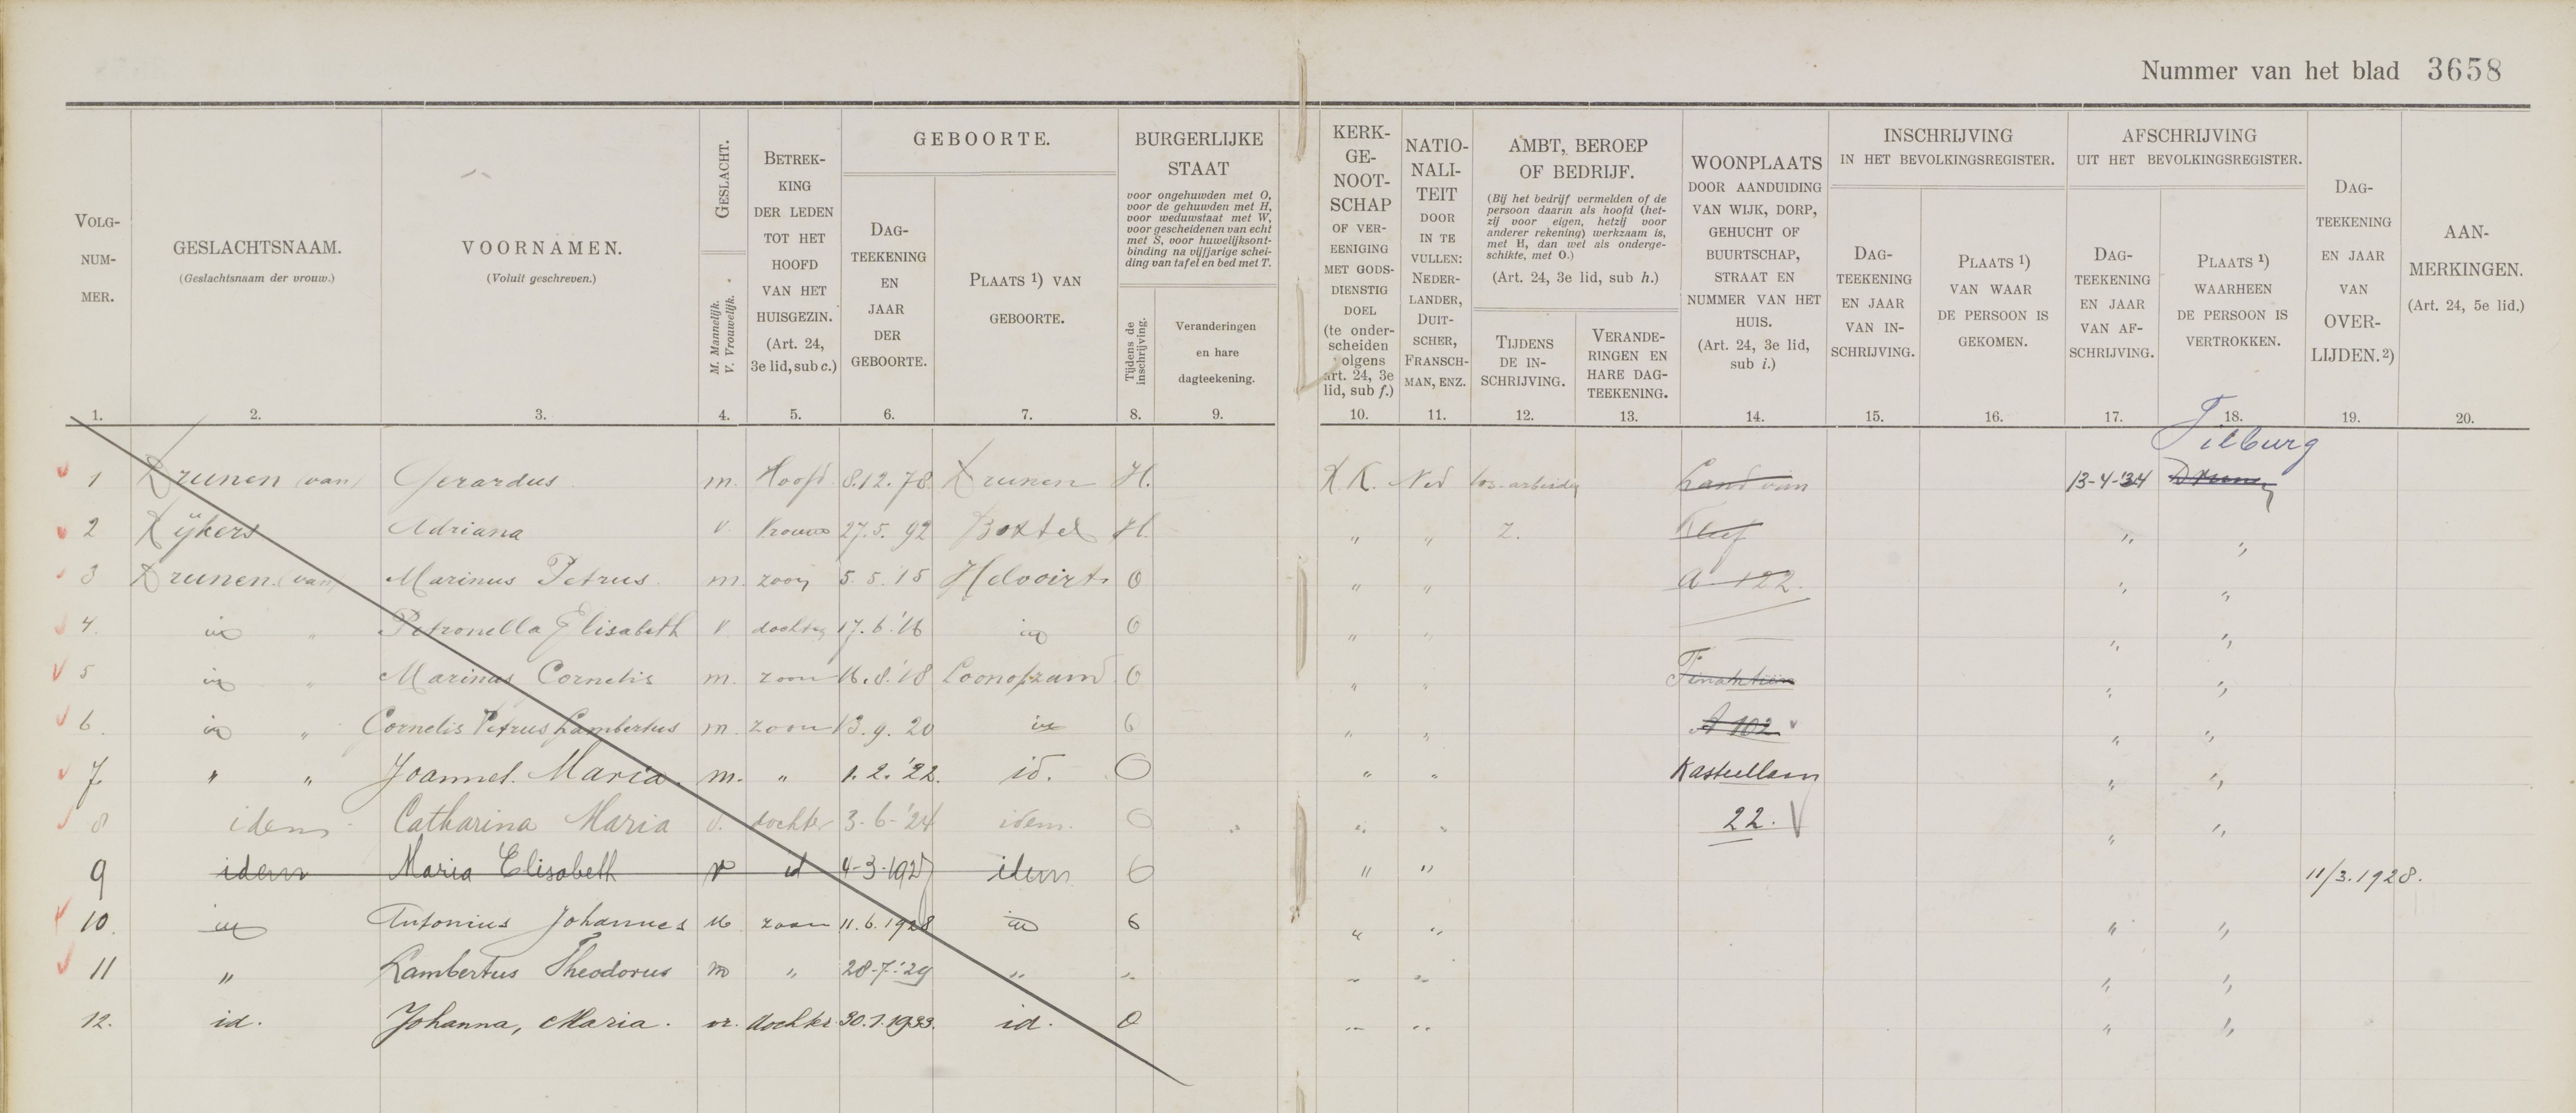 Nummer van het blad 3658
VOLG-NUM-MER.
GESLACHTSNAAM.
(Geslachtsnaam der vrouw.)
VOORNAMEN.
(Voluit geschreven.)
GESLACHT.
M. Mannelijk.
V. Vrouwelijk.
BETREK-
KING
DER LEDEN
TOT HET
HOOFD
VAN HET
HUISGEZIN.
(Art. 24,
3e lid, sub c.)
GEBOORTE.
DAG-
TEEKENING
EN
JAAR
DER
GEBOORTE.
PLAATS ¹) VAN
GEBOORTE.
BURGERLIJKE
STAAT
voor ongehuwden met O,
voor de gehuwden met H,
voor weduwstaat met W,
voor gescheidenen van echt
met S, voor huwelijksont-
binding na vijfjarige schei-
ding van tafel en bed met T.
Tijdens de
inschrijving.
Veranderingen
en hare
dagteekening.
KERK-
GE-
NOOT-
SCHAP
OF VER-
EENIGING
MET GODS-
DIENSTIG
DOEL
(te onder-
scheiden
volgens
art. 24, 3e
lid, sub f.)
NATIO-
NALI-
TEIT
DOOR
IN TE
VULLEN:
NEDER-
LANDER,
DUIT-
SCHER,
FRANSCH-
MAN, ENZ.
AMBT, BEROEP
OF BEDRIJF.
(Bij het bedrijf vermelden of de
persoon daarin als hoofd (het-
zij voor eigen, hetzij voor
anderer rekening) werkzaam is,
met H, dan wel als onderge-
schikte, met O.)
(Art. 24, 3e lid, sub h.)
TIJDENS
DE IN-
SCHRIJVING.
VERANDE-
RINGEN EN
HARE DAG-
TEEKENING.
WOONPLAATS
DOOR AANDUIDING
VAN WIJK, DORP,
GEHUCHT OF
BUURTSCHAP,
STRAAT EN
NUMMER VAN HET
HUIS.
(Art. 24, 3e lid,
sub i.)
INSCHRIJVING
IN HET BEVOLKINGSREGISTER.
DAG-
TEEKENING
EN JAAR
VAN IN-
SCHRIJVING.
PLAATS ¹)
VAN WAAR
DE PERSOON IS
GEKOMEN.
AFSCHRIJVING
UIT HET BEVOLKINGSREGISTER.
DAG-
TEEKENING
EN JAAR
VAN AF-
SCHRIJVING.
PLAATS ¹)
WAARHEEN
DE PERSOON IS
VERTROKKEN.
DAG-
TEEKENING
EN JAAR
VAN
OVER-
LIJDEN.²)
AAN-
MERKINGEN.
(Art. 24, 5e lid.)
1. 2. 3. 4. 5. 6. 7. 8. 9. 10. 11. 12. 13. 14. 15. 16. 17. 18. 19. 20.
Tilburg
1 Drunen (van) Gerardus m. Hoofd 8.12.78 Drunen H. R.K. Ned los-arbeider Land van 13-4-'34 Drunen
2 Dijkers Adriana v. Vrouw 27.5.92 Boxtel H. " " Z. Kleef " "
3 Drunen (van) Marinus Petrus m. zoon 5.5.'15 Helvoirt O " " A 122. " "
4. id " Petronella Elisabeth v. dochter 17.6.'16 id O " " " "
5 id " Marinus Cornelis m. zoon 16.8.'18 Loonopzand O " " " "
6. id " Cornelis Petrus Lambertus m. zoon 13.9.20 id O " " A 102 " "
7 " " Joannes Maria. m. " 1.2.'22. id. O " " Kasteellaan " "
8 idem Catharina Maria v. dochter 3-6-'24 idem. O " " " 22. " "
9 idem Maria Elisabeth v id 4-3-1927 idem O " " 11/3.1928.
10. id Antonius Johannes M zoon 11.6.1928 id O " " " "
11 " Lambertus Theodorus m " 28-7-'29 " " " " " "
12. id. Johanna, Maria. vr. dochter 30.1.1933. id. O " " " "